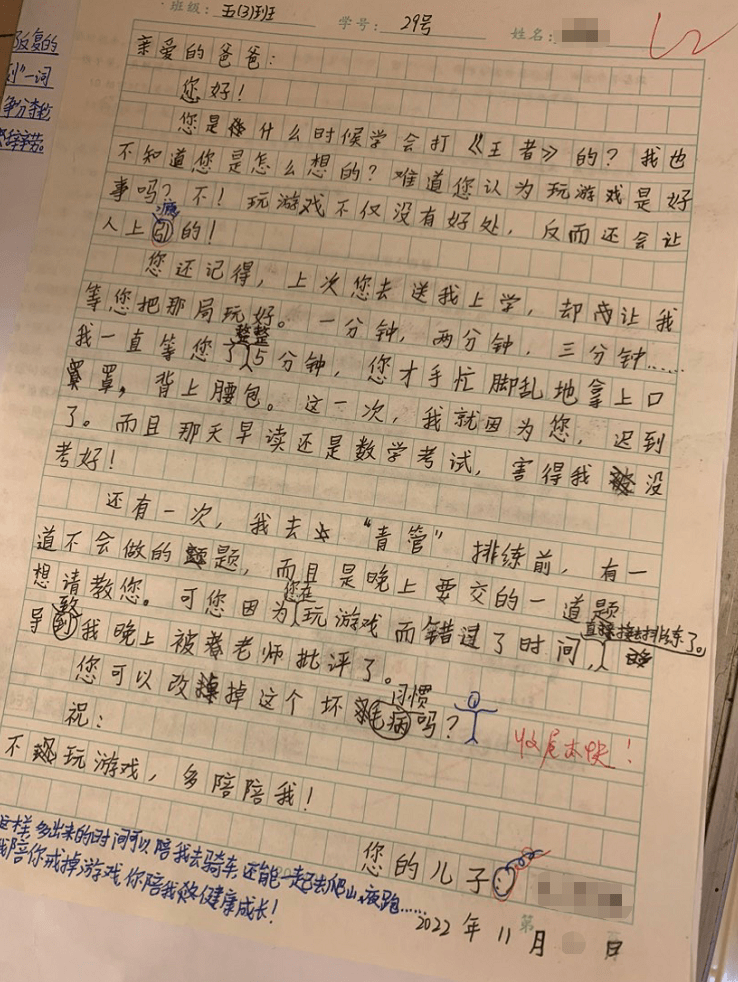 班级: 五(3)班 学号: 29号 姓名:
反复的
到"一词
争分夺秒
亲爱的爸爸:
您好!
您是什么时候学会打《王者》的?我也
不知道您是怎么想的?难道您认为玩游戏是好
事吗?不!玩游戏不仅没有好处,反而还会让
人上瘾的!
您还记得,上次您去送我上学,却让我
等您把那局玩好。一分钟,两分钟,三分钟……
我一直等您了整整5分钟,您才手忙脚乱地拿上口
罩,背上腰包。这一次,我就因为您,迟到
了。而且那天早读还是数学考试,害得我没
考好!
还有一次,我去"青管"排练前,有一
道不会做的题,而且是晚上要交的一道题
想请教您。可您因为您在玩游戏而错过了时间,直接去排练了。
导致我晚上被老师批评了。
您可以改掉这个坏习惯吗?
收尾太快!
祝:
不玩游戏,多陪陪我!
您的儿子:
这样多出来的时间可以陪我去骑车,还能一起去爬山、夜跑……
我陪你戒掉游戏,你陪我健康成长!
2022年11月 日